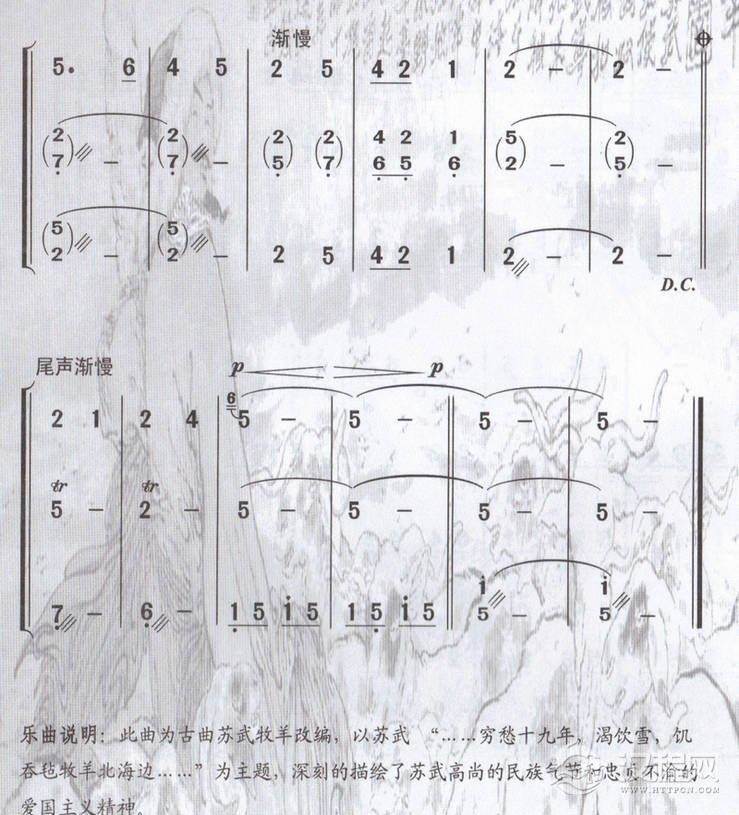 渐慢
5. 6 4 5 2 5 4 2 1 2 – 2 –
2 2 2 2 4 2 1 5 2
7 – 7 – 5 7 6 5 6 2 – 5 –
5 5
2 – 2 – 2 5 4 2 1 2 – 2 –
D.C.
尾声渐慢 p p
6
2 1 2 4 5 – 5 – 5 – 5 –
tr tr
5 – 2 – 5 – 5 – 5 – 5 –
i i
7 – 6 – 1 5 i 5 1 5 i 5 5 – 5 –
乐曲说明：此曲为古曲苏武牧羊改编，以苏武 “……穷愁十九年，渴饮雪，饥
吞毡牧羊北海边……”为主题，深刻的描绘了苏武高尚的民族气节和忠贞不渝的
爱国主义精神。
WWW.HTTPCN.COM